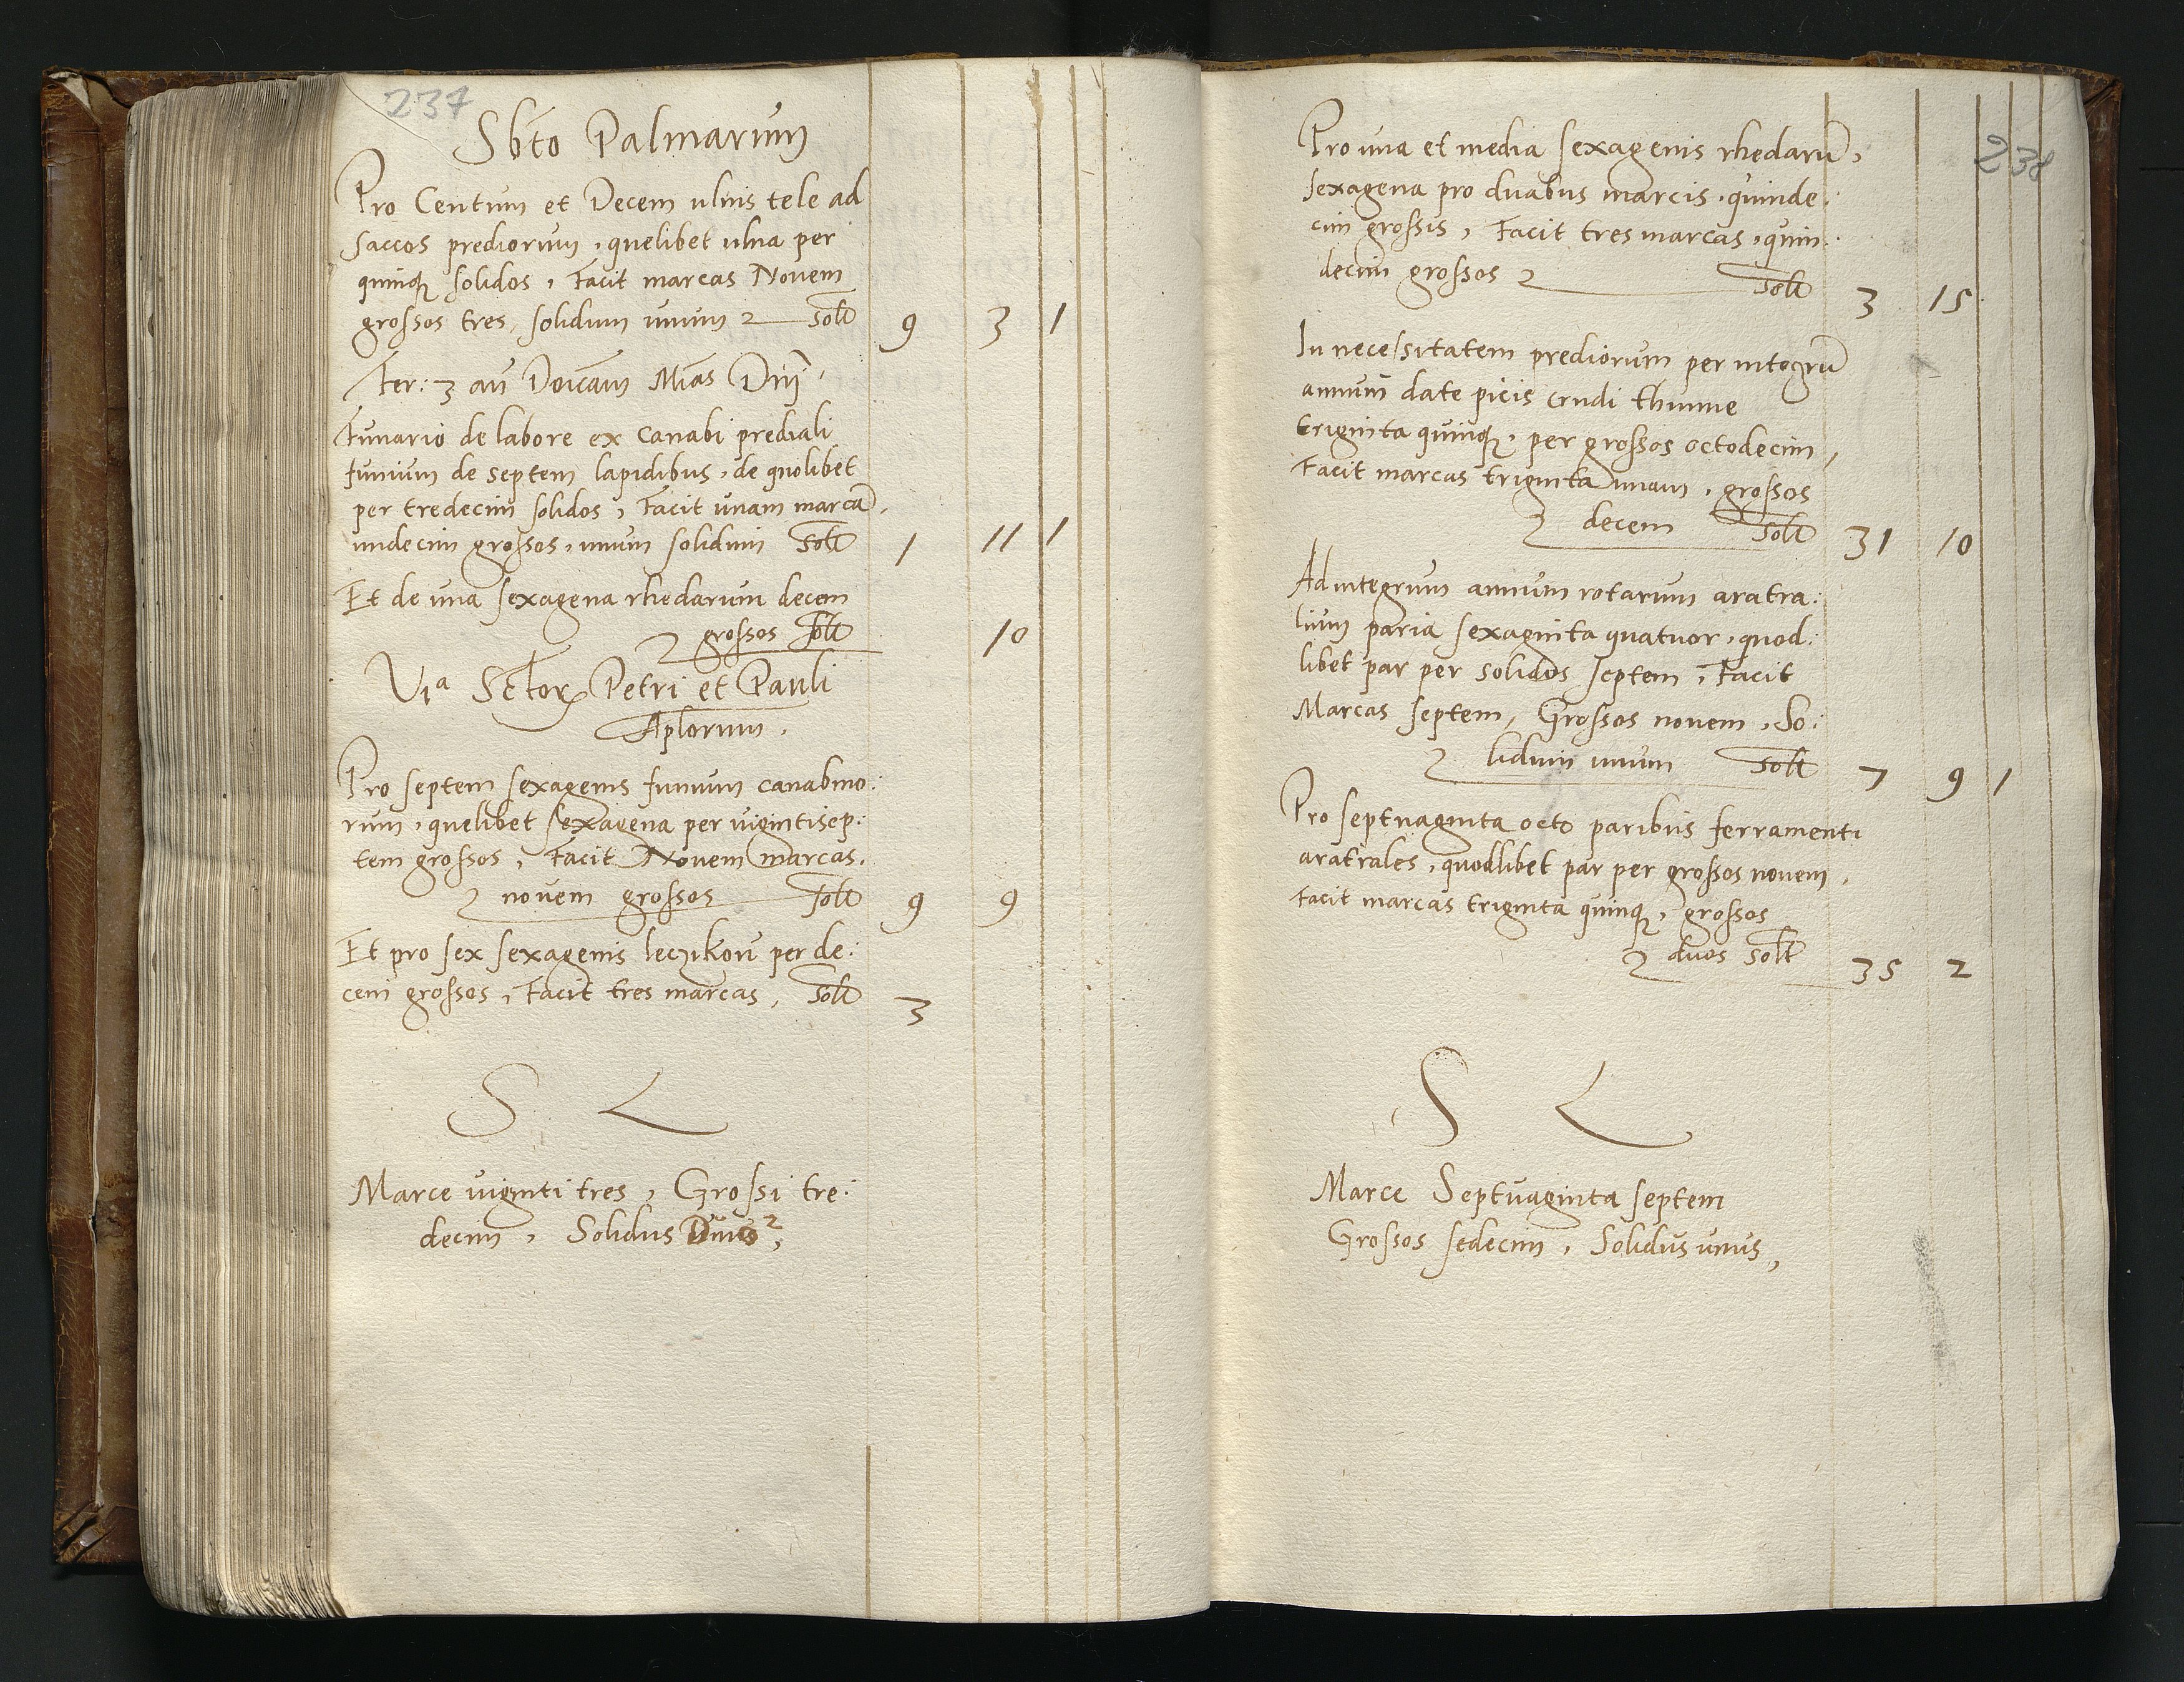 237
Sbto Palmarum
Pro Centum et Decem ulnis tele ad
saccos prediorum, quelibet ulna per
quinq solidos, Facit marcas Novem
grossos tres, solidum unum solt 9 3 1
Fer: 3 an Doicam Mias Dni,
Funario de labore ex canabi prediali
funium de septem lapidibus, de quolibet
per tredecim solidos, Facit unam marca,
undecim grossos, unum solidum Solt 1 11 1
Et de una sexagena rhedarum decem
grossos solt 10
Via Sctor Petri et Pauli
Aplorum.
Pro septem sexagenis funium canabino:
rum, quelibet sexagena per vigintisep:
tem grossos, Facit Novem marcas,
novem grossos solt 9 9
Et pro sex sexagenis leczikou per de:
cem grossos, Facit tres marcas, Solt 3
S L
Marce viginti tres, Grossi tre:
decim, Solidus 2,
238
Pro una et media sexagenis rhedaru,
sexagena pro duabus marcis, quinde:
cim grossis, Facit tres marcas, quin:
decim grossos Solt 3 15
In necessitatem prediorum per integru
annum date picis crudi thunne
triginta quinq, per grossos octodecim,
Facit marcas triginta unam, grossos
decem Solt 31 10
Ad integrum annum rotarum aratra:
lium paria sexaginta quatuor, quod:
libet par per solidos septem, Facit
Marcas septem, Grossos novem, So:
lidum unum Solt 7 9 1
Pro septuaginta octo paribus ferramenti
aratrales, quodlibet par per grossos novem,
Facit marcas triginta quinq, grossos
duos Solt 35 2
S L
Marce Septuaginta septem
Grossos sedecim, Solidus unus,